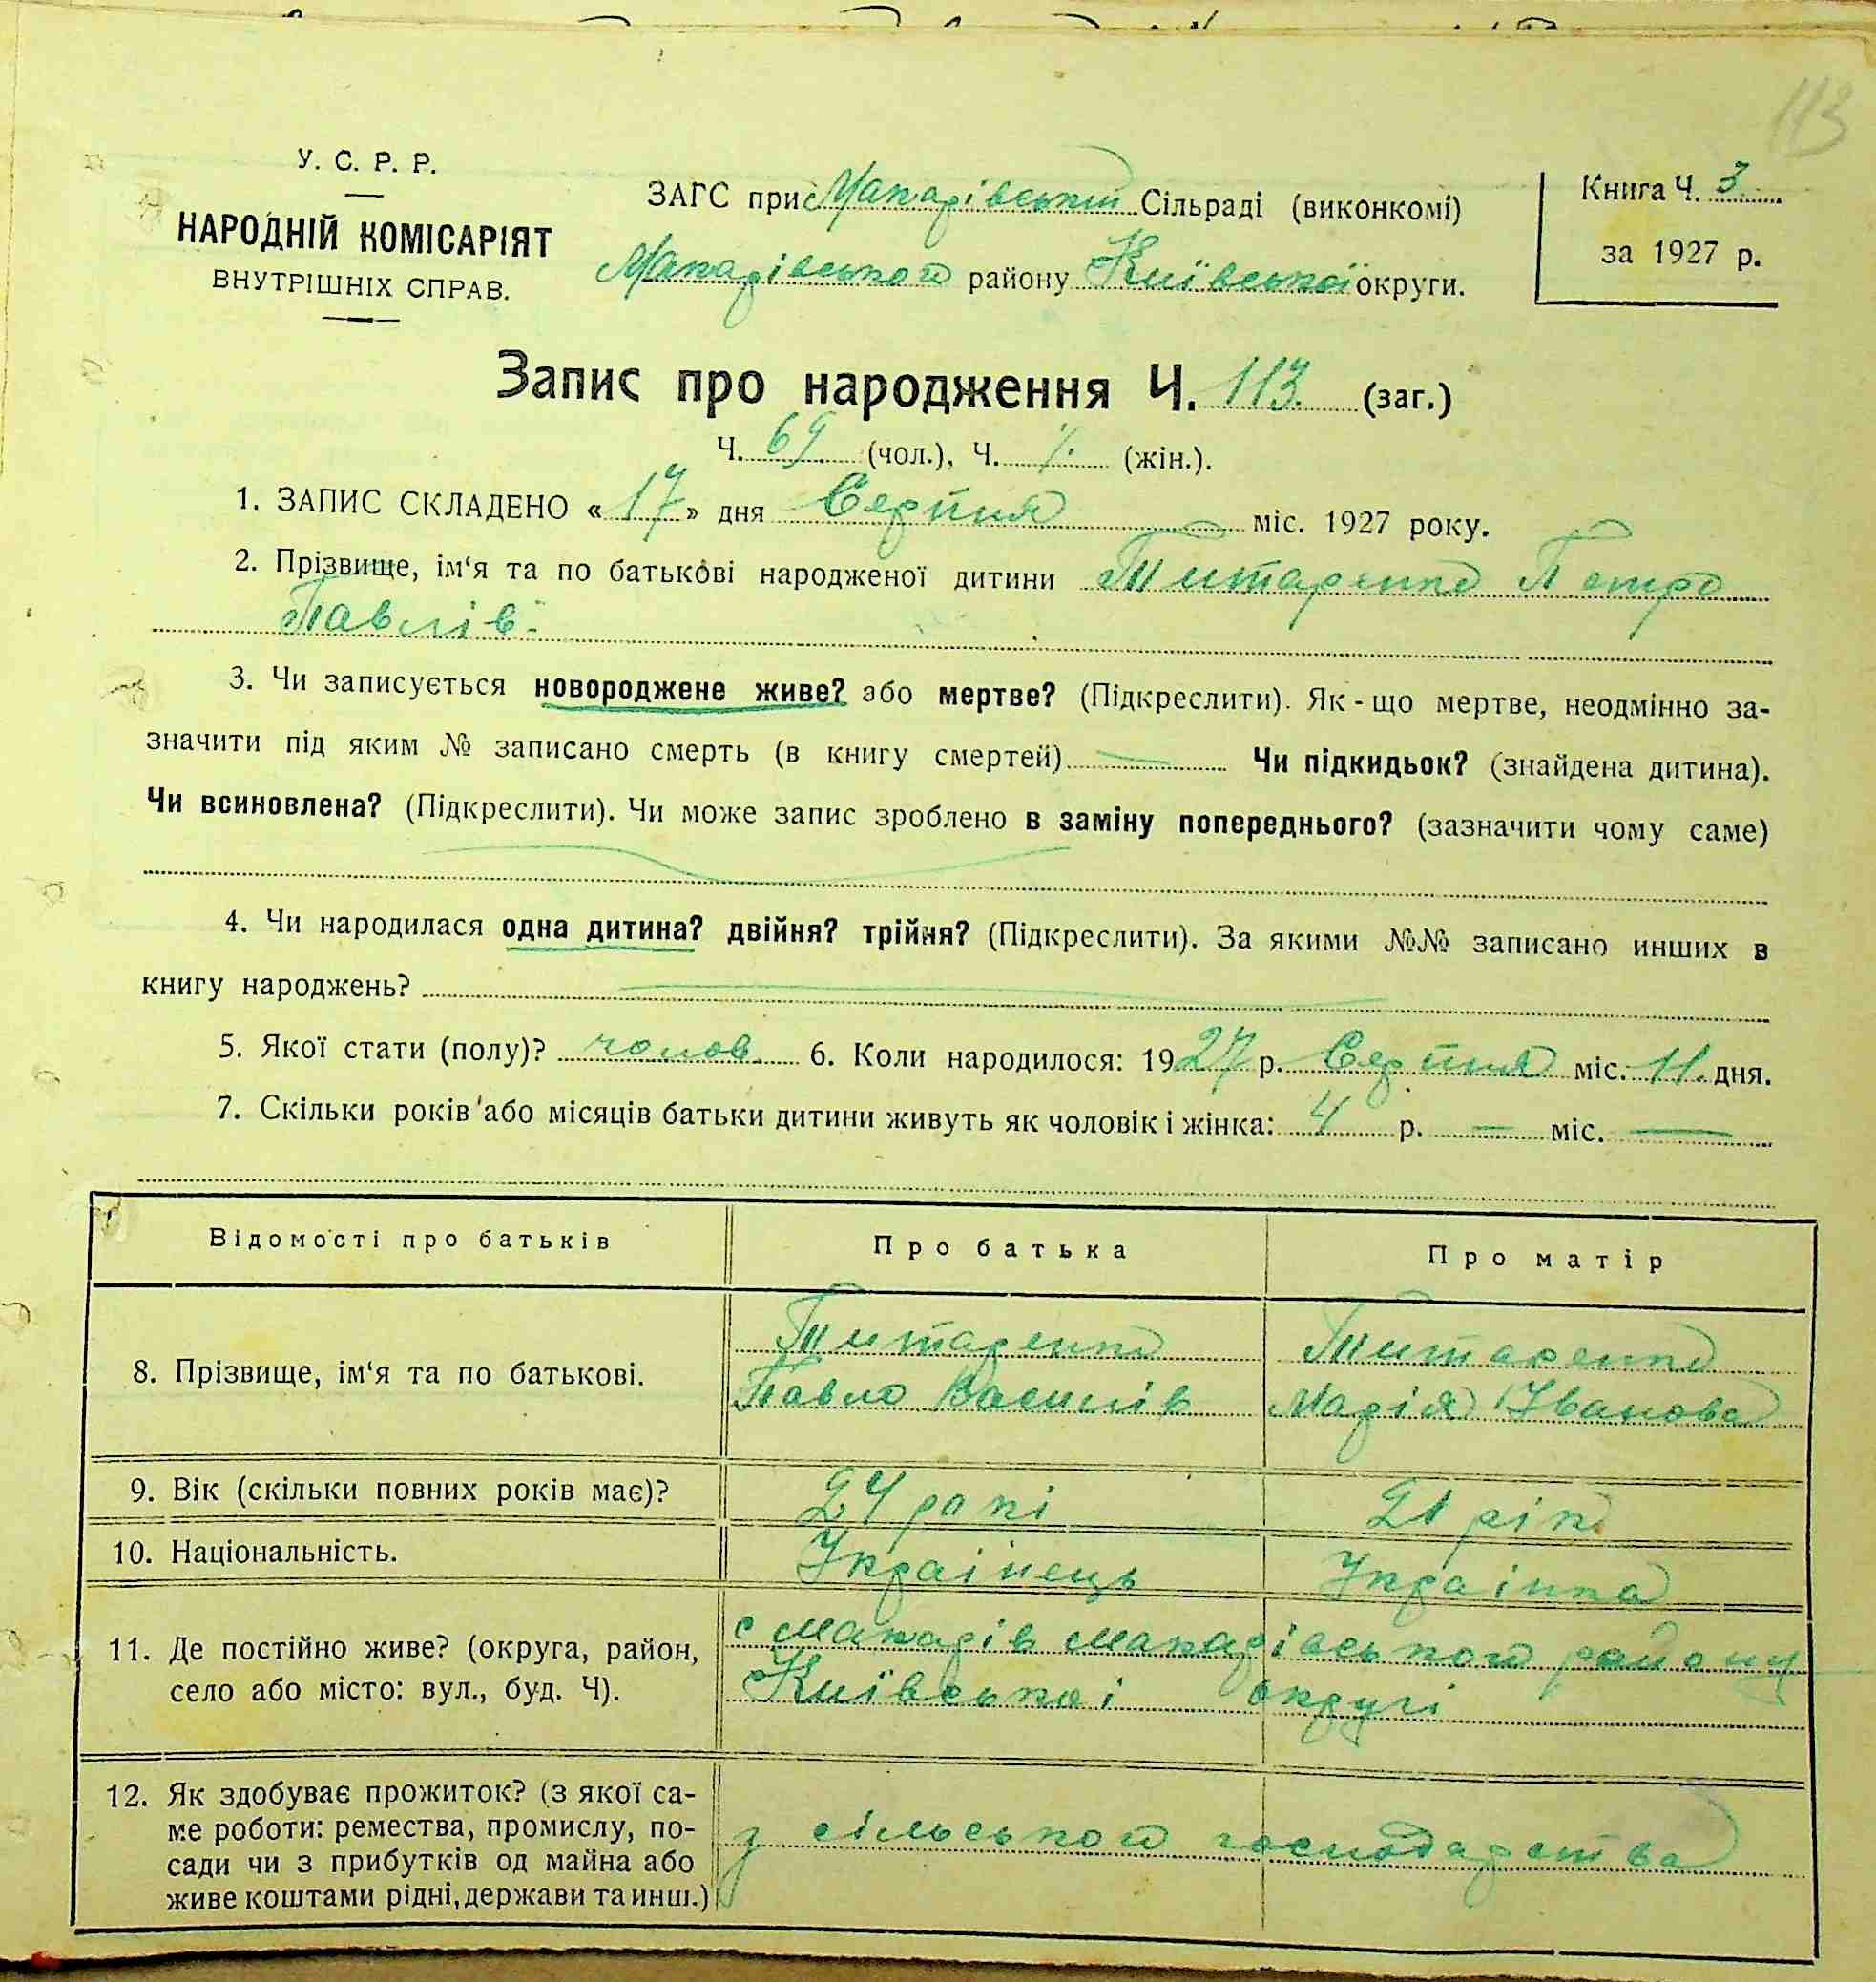 113
У. С. Р. Р.
НАРОДНІЙ КОМІСАРІЯТ
ВНУТРІШНІХ СПРАВ.
ЗАГС при Макарівській Сільраді (виконкомі)
Макарівського району Київської округи.
Книга Ч. 3
за 1927 р.
Запис про народження Ч. 113 (заг.)
Ч. 69 (чол.), Ч. (жін.).
1. ЗАПИС СКЛАДЕНО « 17 » дня Серпня міс. 1927 року.
2. Прізвище, ім‘я та по батькові народженої дитини Титаренко Петро
Павлів.
3. Чи записується новороджене живе? або мертве? (Підкреслити). Як-що мертве, неодмінно за-
значити під яким № записано смерть (в книгу смертей) — Чи підкидьок? (знайдена дитина).
Чи всиновлена? (Підкреслити). Чи може запис зроблено в заміну попереднього? (зазначити чому саме)
4. Чи народилася одна дитина? двійня? трійня? (Підкреслити). За якими №№ записано инших в
книгу народжень?
5. Якої стати (полу)? чолов. 6. Коли народилося: 1927 р. Серпня міс. 11. дня.
7. Скільки років або місяців батьки дитини живуть як чоловік і жінка: 4 р. — міс. —
Відомості про батьків Про батька Про матір
8. Прізвище, ім‘я та по батькові.
Титаренко Титаренко
Павло Василів Марія Іванова
9. Вік (скільки повних років має)? 24 рокі 21 рік
10. Національність. Украінець Украінка
11. Де постійно живе? (округа, район,
село або місто: вул., буд. Ч).
с Макарів Макарівського району
Київськоі округі
12. Як здобуває прожиток? (з якої са-
ме роботи: ремества, промислу, по-
сади чи з прибутків од майна або
живе коштами рідні, держави та инш.)
з сільського господарства